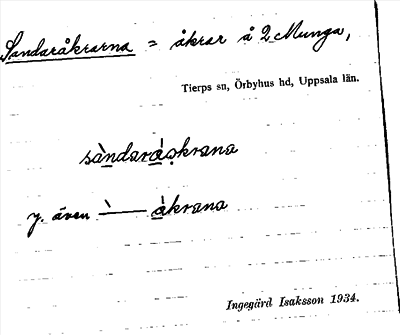 Sandaråkrarna = åkrar å 2 Munga,
Tierps sn, Örbyhus hd, Uppsala län.
sàndaràskrana
y. även `—— àkrana
Ingegärd Isaksson 1934.